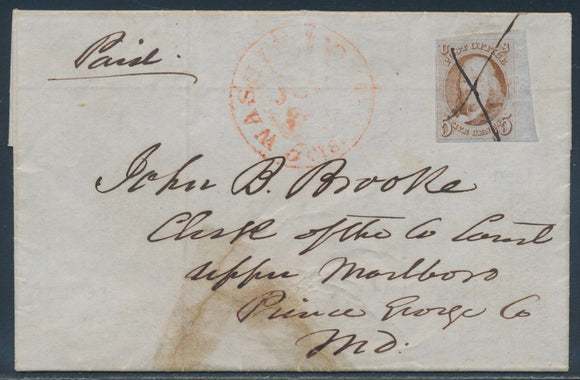 Paid.
WASH
U S
POST OFFICE
FIVE CENTS
5 5
John B. Brooke
Clerk of the Co Court
upper Marlboro
Prince George Co
Md.